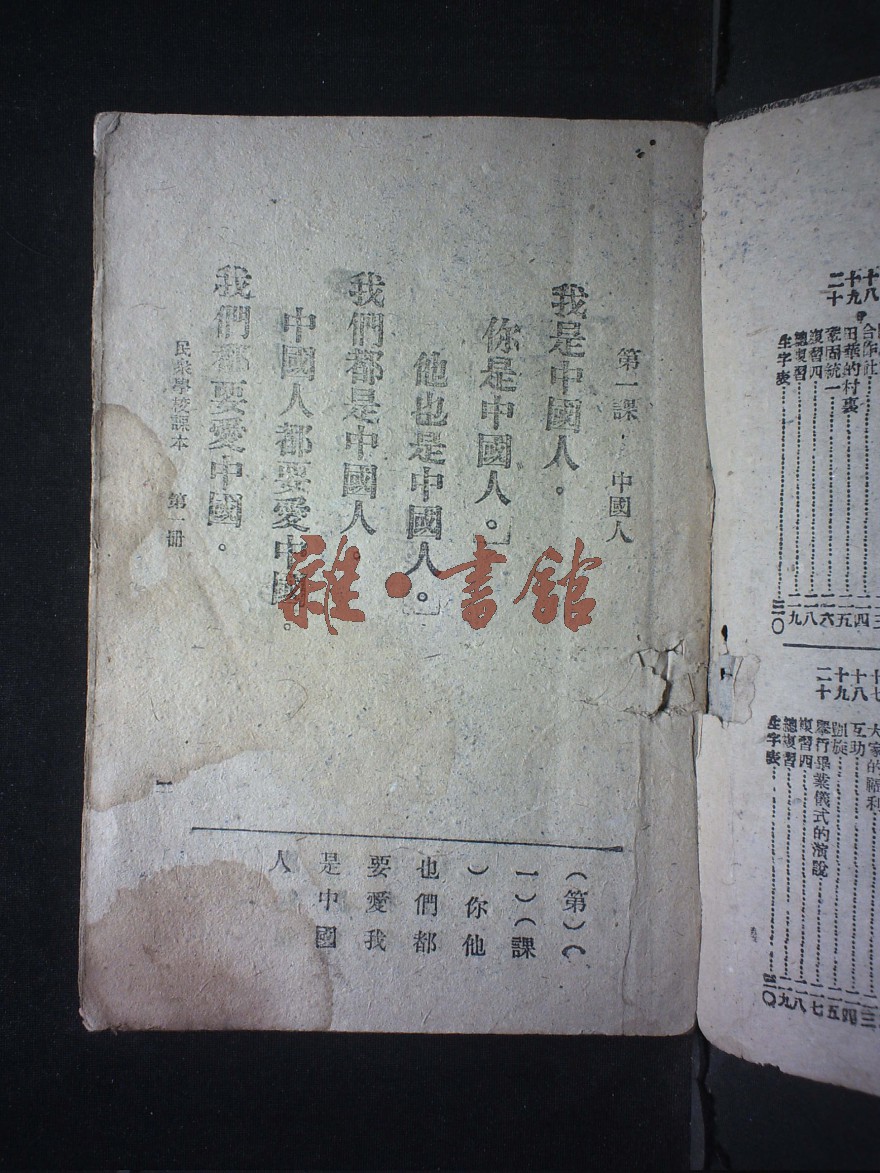 十八
合作社 一四
十九
田華的村裏 一五
二十
鞏固統一 一六
複習四 一八
總複習 一九
生字表 二〇
大家的福利
十八
互功 一四
十九
凱旋 一五
二十
舉行畢業儀式的演說 一七
複習四 一八
總複習 一九
生字表 二〇
第一課 中國人
我是中國人。
你是中國人。
他也是中國人。
我們都是中國人。
中國人都要愛中國。
我們都要愛中國。
民衆學校課本 第一冊
一
（第）（
一）（課
）你他
也們都
要愛我
是中國
人
雜·書館